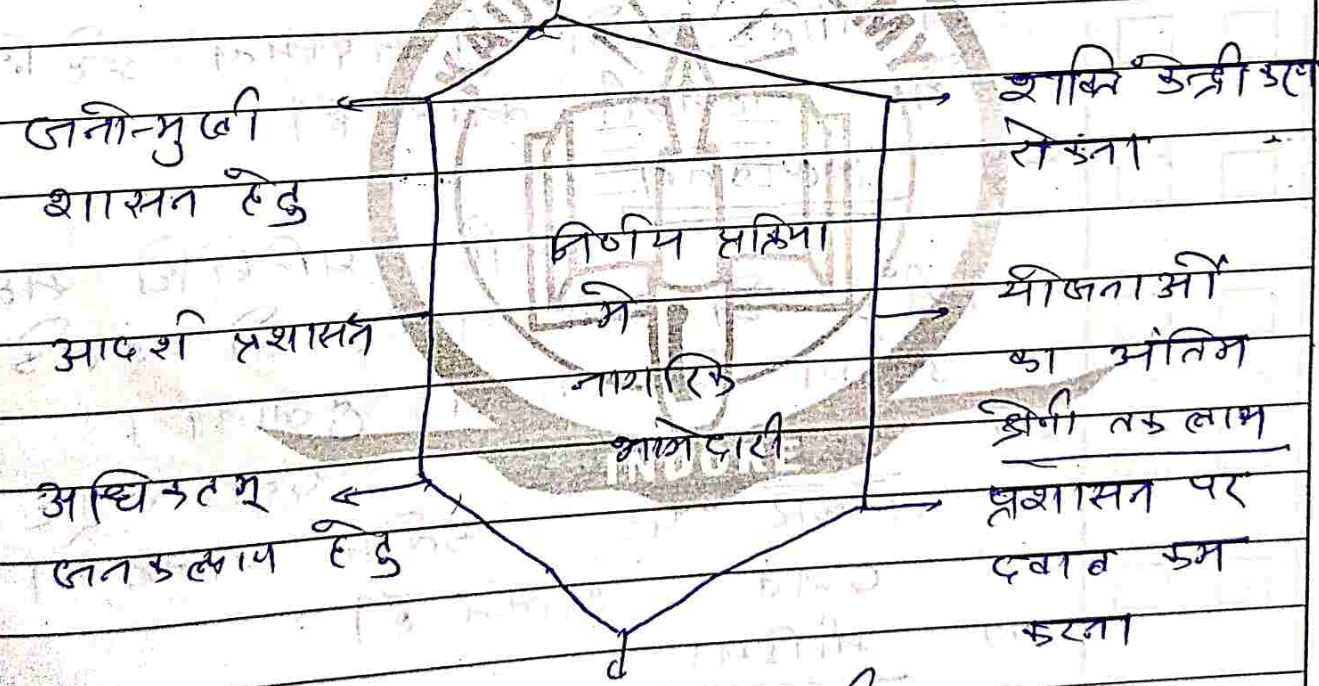 जनोन्मुखी
शासन हेतु
आदर्श प्रशासन
अधिकतम्
जनकल्याण हेतु
निर्णय प्रक्रिया
में
नागरिक
भागेदारी
शक्ति केन्द्रीकरण
रोकना
योजनाओं
का अंतिम
श्रेणी तक लाभ
प्रशासन पर
दबाब कम
करना
INDORE